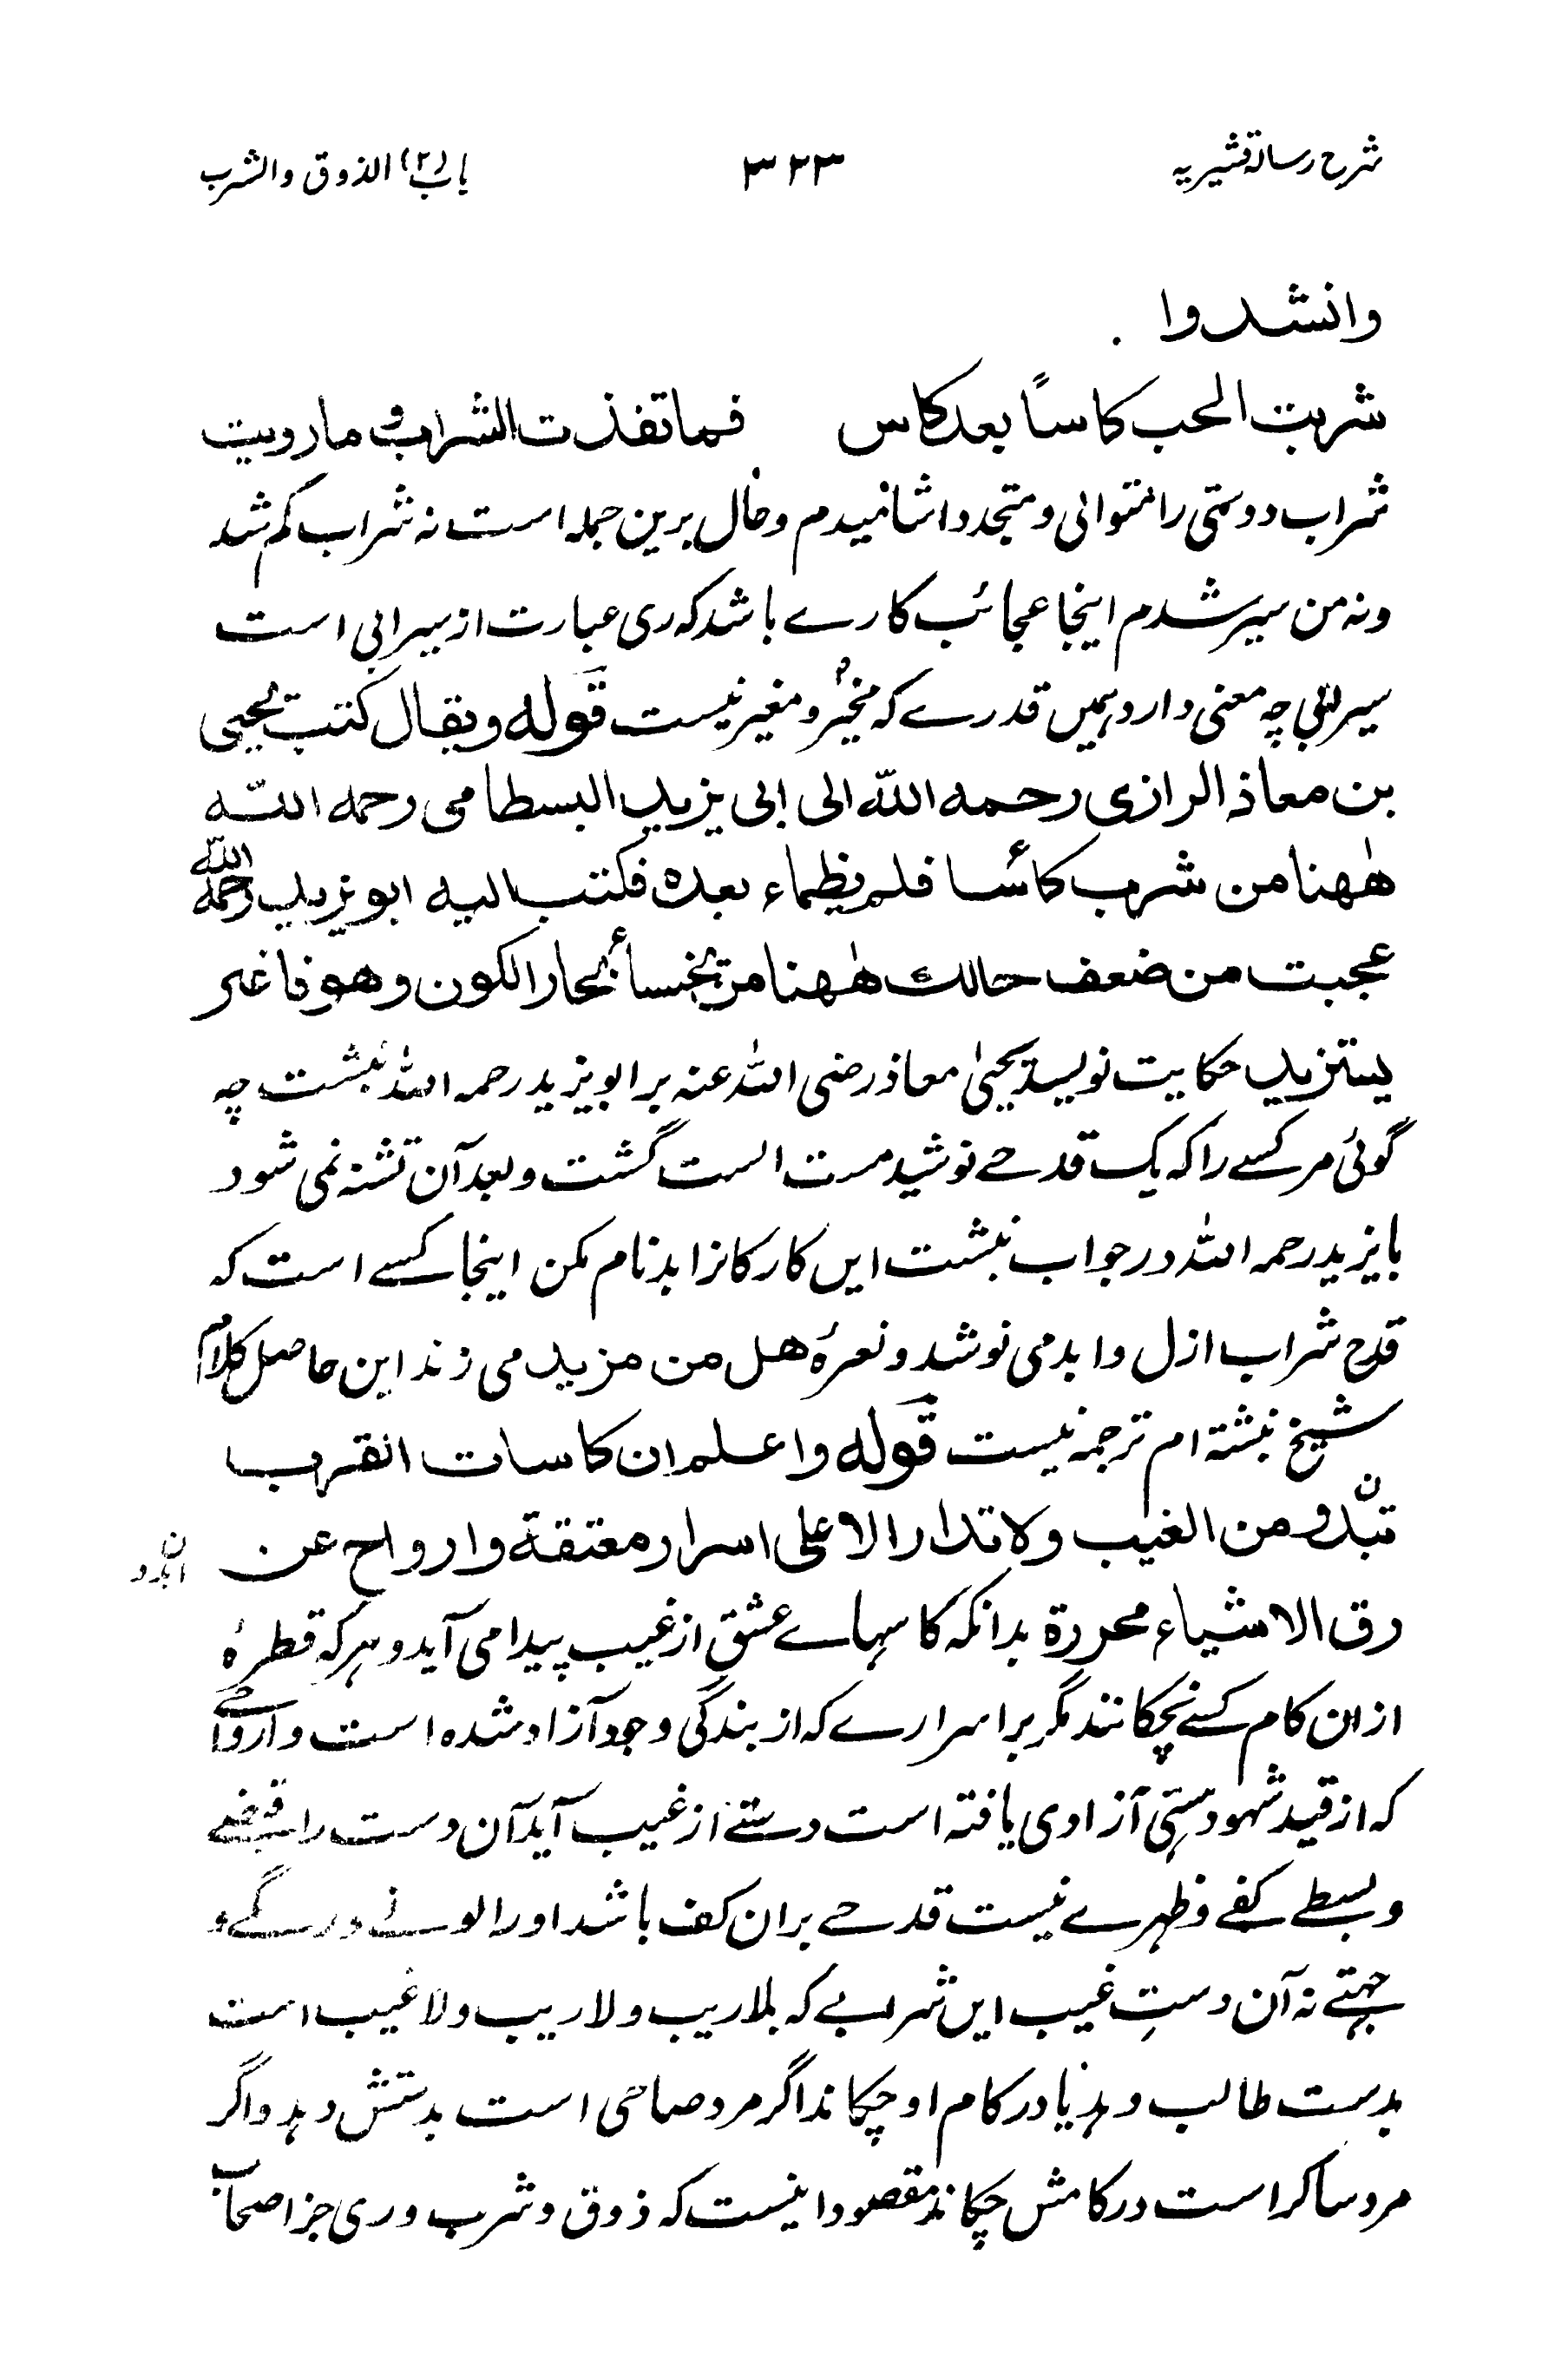 شرح رسالۂ قشیریہ ۳۲۳ باب (۲) الذوق والشرب
وانشدوا .
شربت الحب کاساً بعد کاس فما نفذت الشراب وما رویت
شراب دوستی را متوالی و متجدد آشامیدم و حال برین جملہ است نہ شراب کم شد
ونہ من سیر شدم اینجا عجائب کارے باشد کہ ری عبارت از سیرابی است
سیرابی چہ معنی دارد ہمیں قدرے کہ مخیر و مغیر نیست قوله ویقال کتب یحیی
بن معاذ الرازی رحمه الله الی ابی یزید البسطامی رحمه الله
هٰهنا من شرب کأسا فلم یظماء بعده فکتب الیه ابو یزید رحمه الله
عجبت من ضعف حالك هٰهنا من یخسأ بحار الکون وهو فاغر
یستزید حکایت نویسد یحیٰی معاذ رضی اللہ عنہ بر ابو یزید رحمہ اللہ نبشت چہ
گوئی مر کسے را کہ یک قدحے نوشید مست الست گشت و بعد آن تشنہ نمی شود
بایزید رحمہ اللہ در جواب نبشت ایں کار کانرا بدنام مکن اینجا کسے است کہ
قدح شراب ازل و ابد می نوشد و نعرۂ هل من مزید می زند این حاصل کلام
شیخ نبشتہ ام ترجمہ نیست قوله واعلم ان کاسات القرب
تبدو من الغیب ولا تدار الا علی اسرار معتقة وارواح عن
رق الاشیاء محررة بدانکہ کاسہاے عشق از غیب پیدا می آید و ہر کہ قطرۂ
ازان کام کسے نچکانند مگر بر اسرارے کہ از بندگی وجود آزاد شدہ است و ارواحے
کہ از قید شہود ہستی آزادی یافتہ است دستے از غیب آید آن دست را قبضے
و بسطے کفے و ظہرے نیست قدحے بران کف باشد او را لونے ورنگے و
جہتے نہ آن دستِ غیب ایں شربے کہ بلاریب ولاریب ولاغیب است
بدست طالب دہد یا در کام او چکاند اگر مرد صاحی است بدستش دہد واگر
مرد ساکر است در کامش چکاند مقصود اینست کہ ذوق و شرب و ری جز اصحاب